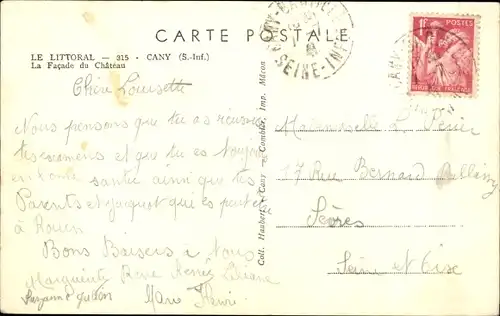 CARTE POSTALE
LE LITTORAL — 315 - CANY (S.-Inf.)
La Façade du Château
Chère Louisette
Nous pensons que tu as réussi
tes examens et que tu es toujours
en bonne santé ainsi que tes
Parents et Jacquot qui es peut être
à Rouen
Bons Baisers à Vous
Marguerite René Henri Liliane
Suzanne
Marc Henri
Coll. Haubert, Cany - Combier, Imp. Mâcon
CANY-BARVILLE
SEINE-INF
1F POSTES
REPUBLIQUE FRANCAISE
Mademoiselle L.
17 Rue Bernard Palissy
Sèvres
Seine et Oise